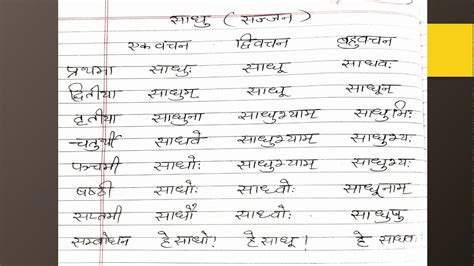 साधु ( सज्जन )
एकवचन द्विवचन बहुवचन
प्रथमा साधुः साधू साधवः
द्वितीया साधुम साधू साधून
तृतीया साधुना साधुभ्याम साधुभिः
चतुर्थी साधवे साधुभ्याम साधुभ्यः
पञ्चमी साधोः साधुभ्याम साधुभ्यः
षष्ठी साधोः साध्वोः साधूनाम
सप्तमी साधौ साध्वोः साधुषु
सम्बोधन हे साधो! हे साधू! हे साधवः